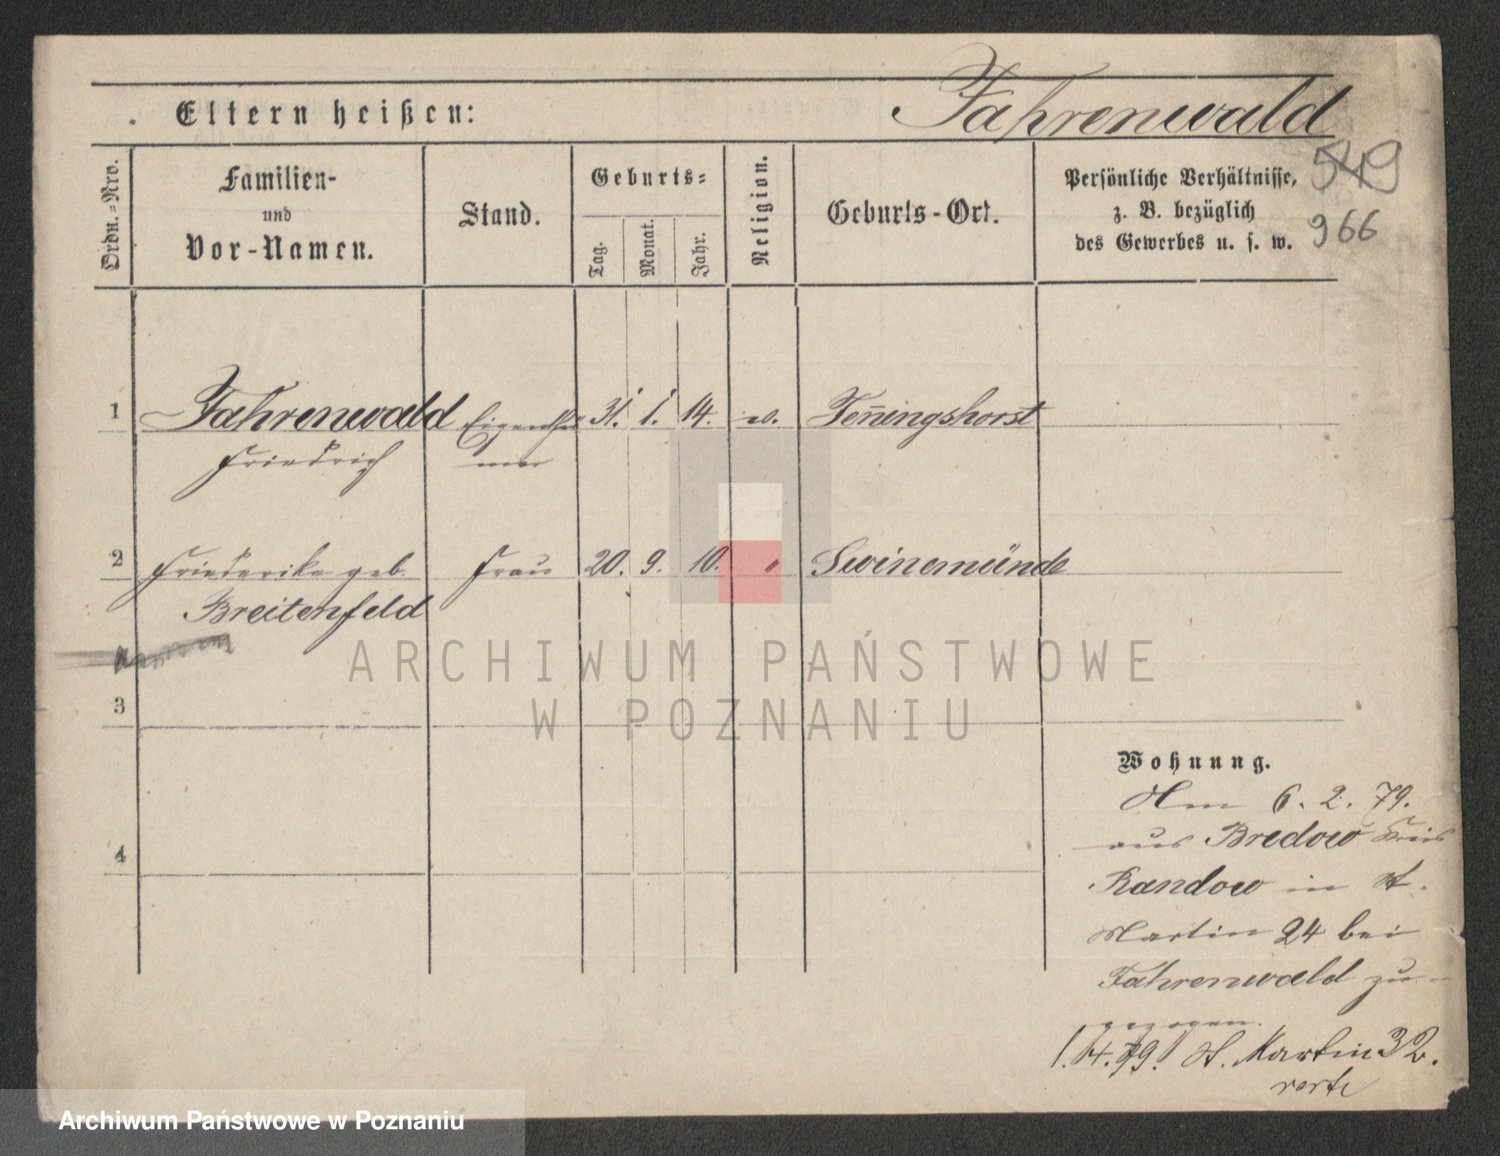 Eltern heißen:
Fahrenwald
549
966
Ordn.-Nro.
Familien-
und
Vor-Namen.
Stand.
Geburts-
Tag.
Monat.
Jahr.
Religion.
Geburts-Ort.
Persönliche Verhältnisse,
z. B. bezüglich
des Gewerbes u. s. w.
1 Fahrenwald Eigenthü 31. 1. 14. ev. Jen̄ingshorst
Friedrich mer
2 Friederike geb. Frau 20. 9. 10. " Swinemünde
Breitenfeld
3
4
Wohnung.
Am 6. 2. 79.
aus Bredow Kreis
Randow in St.
Martin 24 bei
Fahrenwald zu-
gezogen.
1. 4. 79. St. Martin 32.
ARCHIWUM PAŃSTWOWE
W POZNANIU
Archiwum Państwowe w Poznaniu